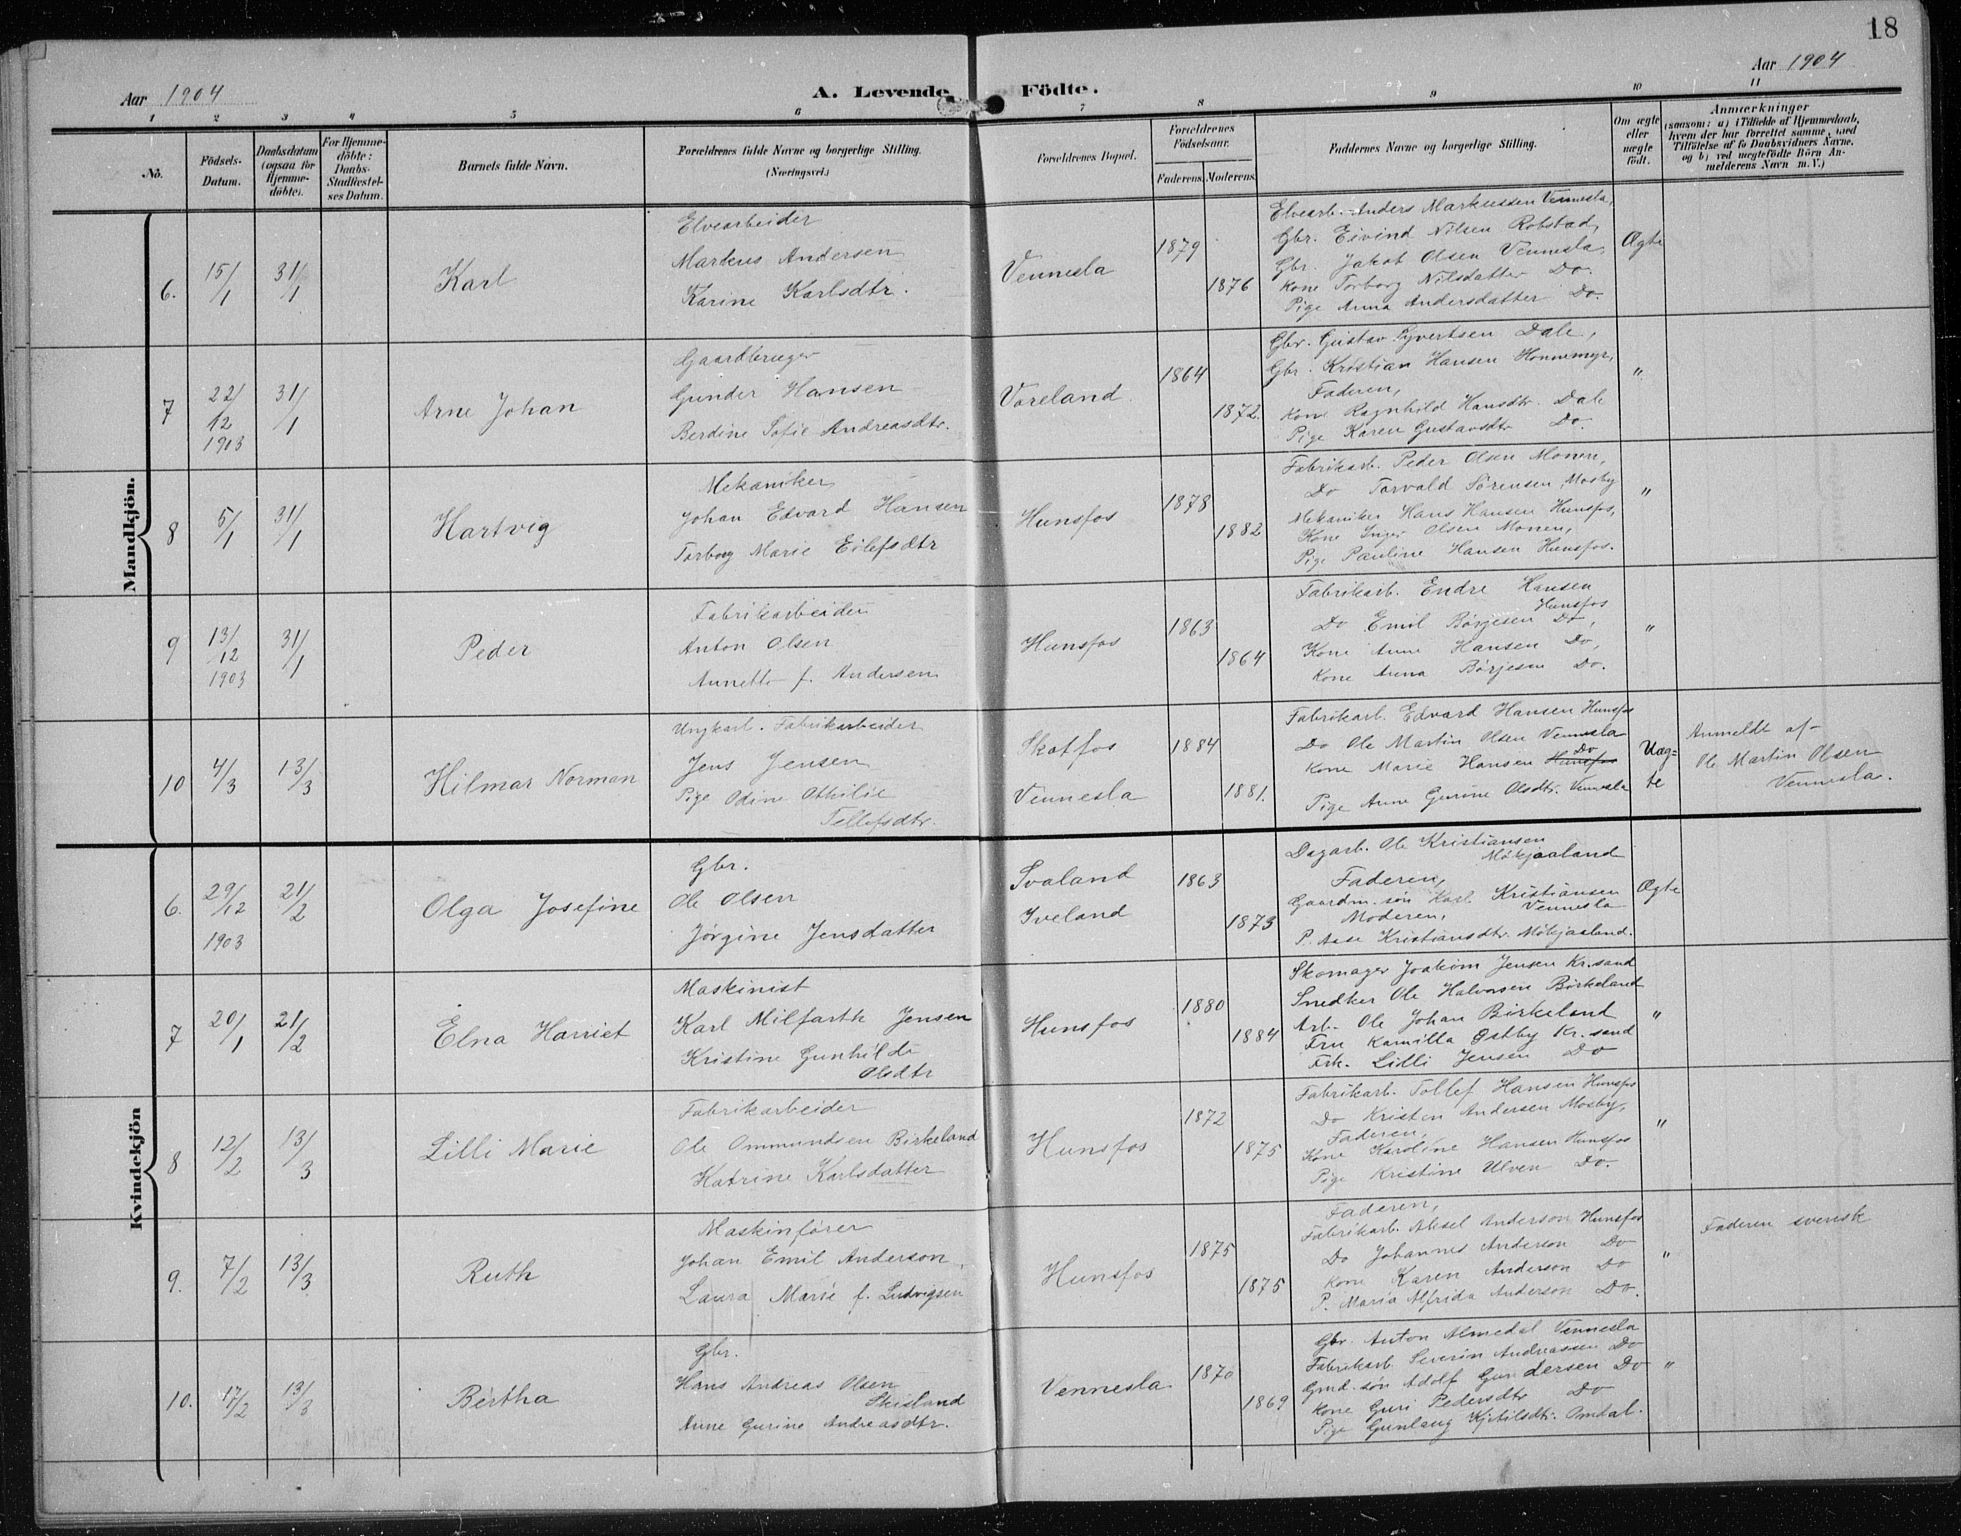 18
Aar 1904
A. Levende
Födte.
Aar 1904
1 2 3 4 5 6 7 8 9 10 11
No.
Födsels-Datum.
Daabsdatum (ogsaa for Hjemme-döbte).
For Hjemme-döbte: Daabs-Stadfæstel-ses Datum.
Barnets fulde Navn.
Forældrenes fulde Navne og borgerlige Stilling.
(Næringsvei.)
Forældrenes Bopæl.
Forældrenes Födselsaar.
Faderens. Moderens.
Faddernes Navne og borgerlige Stilling.
Om ægte eller uægte födt.
Anmærkninger
(saasom: a) i Tilfælde af Hjemmedaab, hvem der har forrettet samme, med Tilföielse af to Daabsvidners Navne, og b) ved uægtefödte Börn An-melderens Navn m. V.)
Mandkjön.
6. 15/1 31/1 Karl
Elvearbeider
Markus Andersen
Karine Karlsdtr.
Vennesla
1879
1876
Elvearb. Anders Markussen Vennesla,
Gbr. Eivind Nilsen Robstad,
Gbr. Jakob Olsen Vennesla,
Kone Torborg Nilsdatter Do.
Pige Anna Andersdatter Do.
Ægte
7 22/12 1903 31/1 Arne Johan
Gaardbruger
Gunder Hansen
Berdine Sofie Andreasdtr.
Voreland.
1864
1872.
Gbr. Gustav Syvertsen Dale,
Gbr. Kristian Hansen Honnemyr,
Faderen,
Kone Ragnhild Hansdtr. Dale
Pige Karen Gustavsdtr Do.
"
8 5/1 31/1 Hartvig
Mekaniker
Johan Edvard Hansen
Torborg Marie Eilefsdtr
Hunsfos
1878
1882
Fabrikarb. Peder Olsen Monen,
Do Torvald Sörensen Mosby
Mekaniker Hans Hansen Hunsfos,
Kone Inger Olsen Monen,
Pige Pauline Hansen Hunsfos.
"
9 13/12 1903 31/1 Peder
Fabrikarbeider
Anton Olsen
Annette f. Andersen
Hunsfos
1863
1864
Fabrikarb. Endre Hansen
Hunsfos
Do Emil Börjesen Do,
Kone Anne Hansen Do,
Kone Anna Börjesen Do.
"
10 4/3 13/3 Hilmar Norman
Ungkarl. Fabrikarbeider
Jens Jensen
Pige Odine Othilie
Tellefsdtr.
Skotfos
Vennesla
1884
1881.
Fabrikarb. Edvard Hansen Hunsfos
Do Ole Martin Olsen Vennesla
Kone Marie Hansen Hunsfos Do
Pige Anne Gurine Olsdtr. Vennesla
Uæg-te
Anmeldt af
Ole Martin Olsen
Vennesla.
Kvindekjön
6. 29/12 1903 21/2 Olga Josefine
Gbr.
Ole Olsen
Jörgine Jensdatter
Svaland
Iveland
1863
1873
Dagarb. Ole Kristiansen
Mökjaaland
Faderen,
Gaardm. sön Karl Kristiansen
Vennesla
Moderen,
P. Aase Kristiansdtr. Mökjaaland.
Ægte
7 20/1 21/2 Elna Harriet
Maskinist
Karl Milfarth Jensen
Kristine Gunhilde
Olsdtr
Hunsfos
1880
1884
Skomager Joakim Jensen Kr.sand
Snedker Ole Halvorsen Birkeland
Arb. Ole Johan Birkeland
Fru Kamilla Östby Kr.sand
Frk. Lilli Jensen Do
"
8 12/2 13/3 Lilli Marie
Fabrikarbeider
Ole Ommundsen Birkeland
Katrine Karlsdatter
Hunsfos
1872
1875
Fabrikarb. Tollef Hansen Hunsfos
Do Kristen Andersen Mosby,
Faderen,
Kone Karoline Hansen Hunsfos
Pige Kristine Ulven Do.
"
9. 7/2 13/3 Ruth
Maskinförer
Johan Emil Anderson,
Laura Marie f. Ludvigsen
Hunsfos
1875
1875
Faderen,
Fabrikarb. Aksel Anderson Hunsfos
Do Johannes Anderson Do
Kone Karen Anderson Do
P. Maria Alfrida Anderson Do.
"
Faderen svensk
10. 17/2 13/3 Bertha
Gbr.
Hans Andreas Olsen
Skisland
Anne Gurine Andreasdtr.
Vennesla
1870
1869
Gbr. Anton Almedal Vennesla
Fabrikarb. Severin Andreassen Do
Gmd. sön Adolf Gundersen Do
Kone Guri Pedersdtr Do
Pige Gunlaug Kjetilsdtr. Omdal.
"